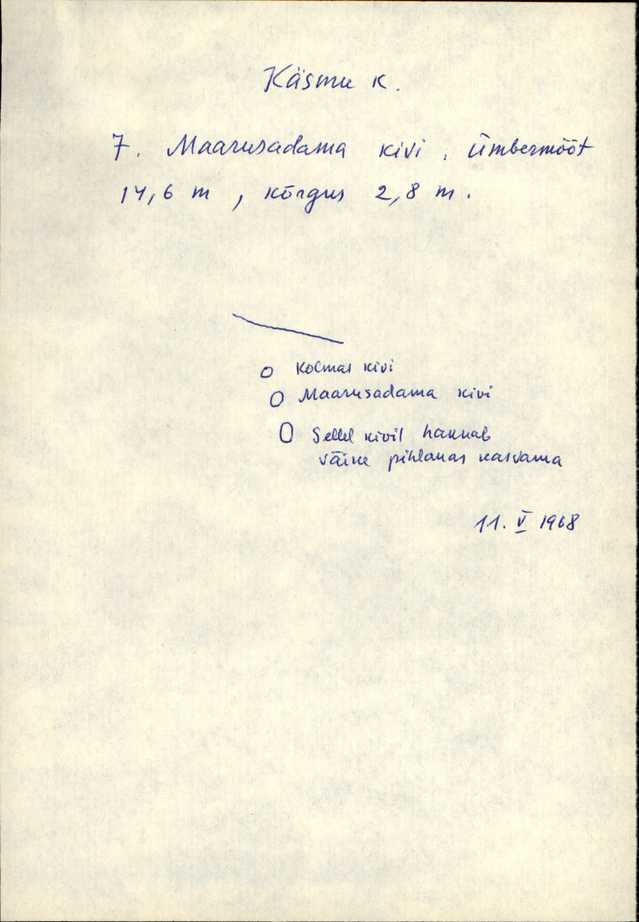 Käsmu k.
7. Maarusadama kivi. Ümbermõõt
14,6 m, kõrgus 2,8 m.
Kolmas kivi
Maarusadama kivi
Sellel kivil hakkab
väike pihlakas kasvama
11. V 1968